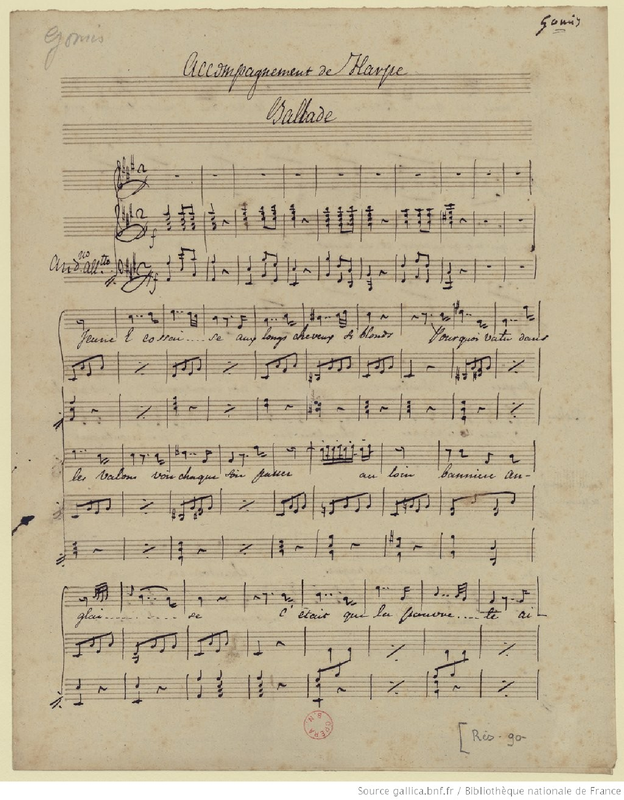 Gomis
Gomis
Accompagnement de Harpe
Ballade
And.no all.tto
Jeune E cossai .... se aux longs cheveux si blonds Pourquoi vatu dans
les valons voir chaque soir passer au loin bannière an-
glai- ......... se C'était que la pauvre .... te ai-
[Rio-go
Source gallica.bnf.fr / Bibliothèque nationale de France